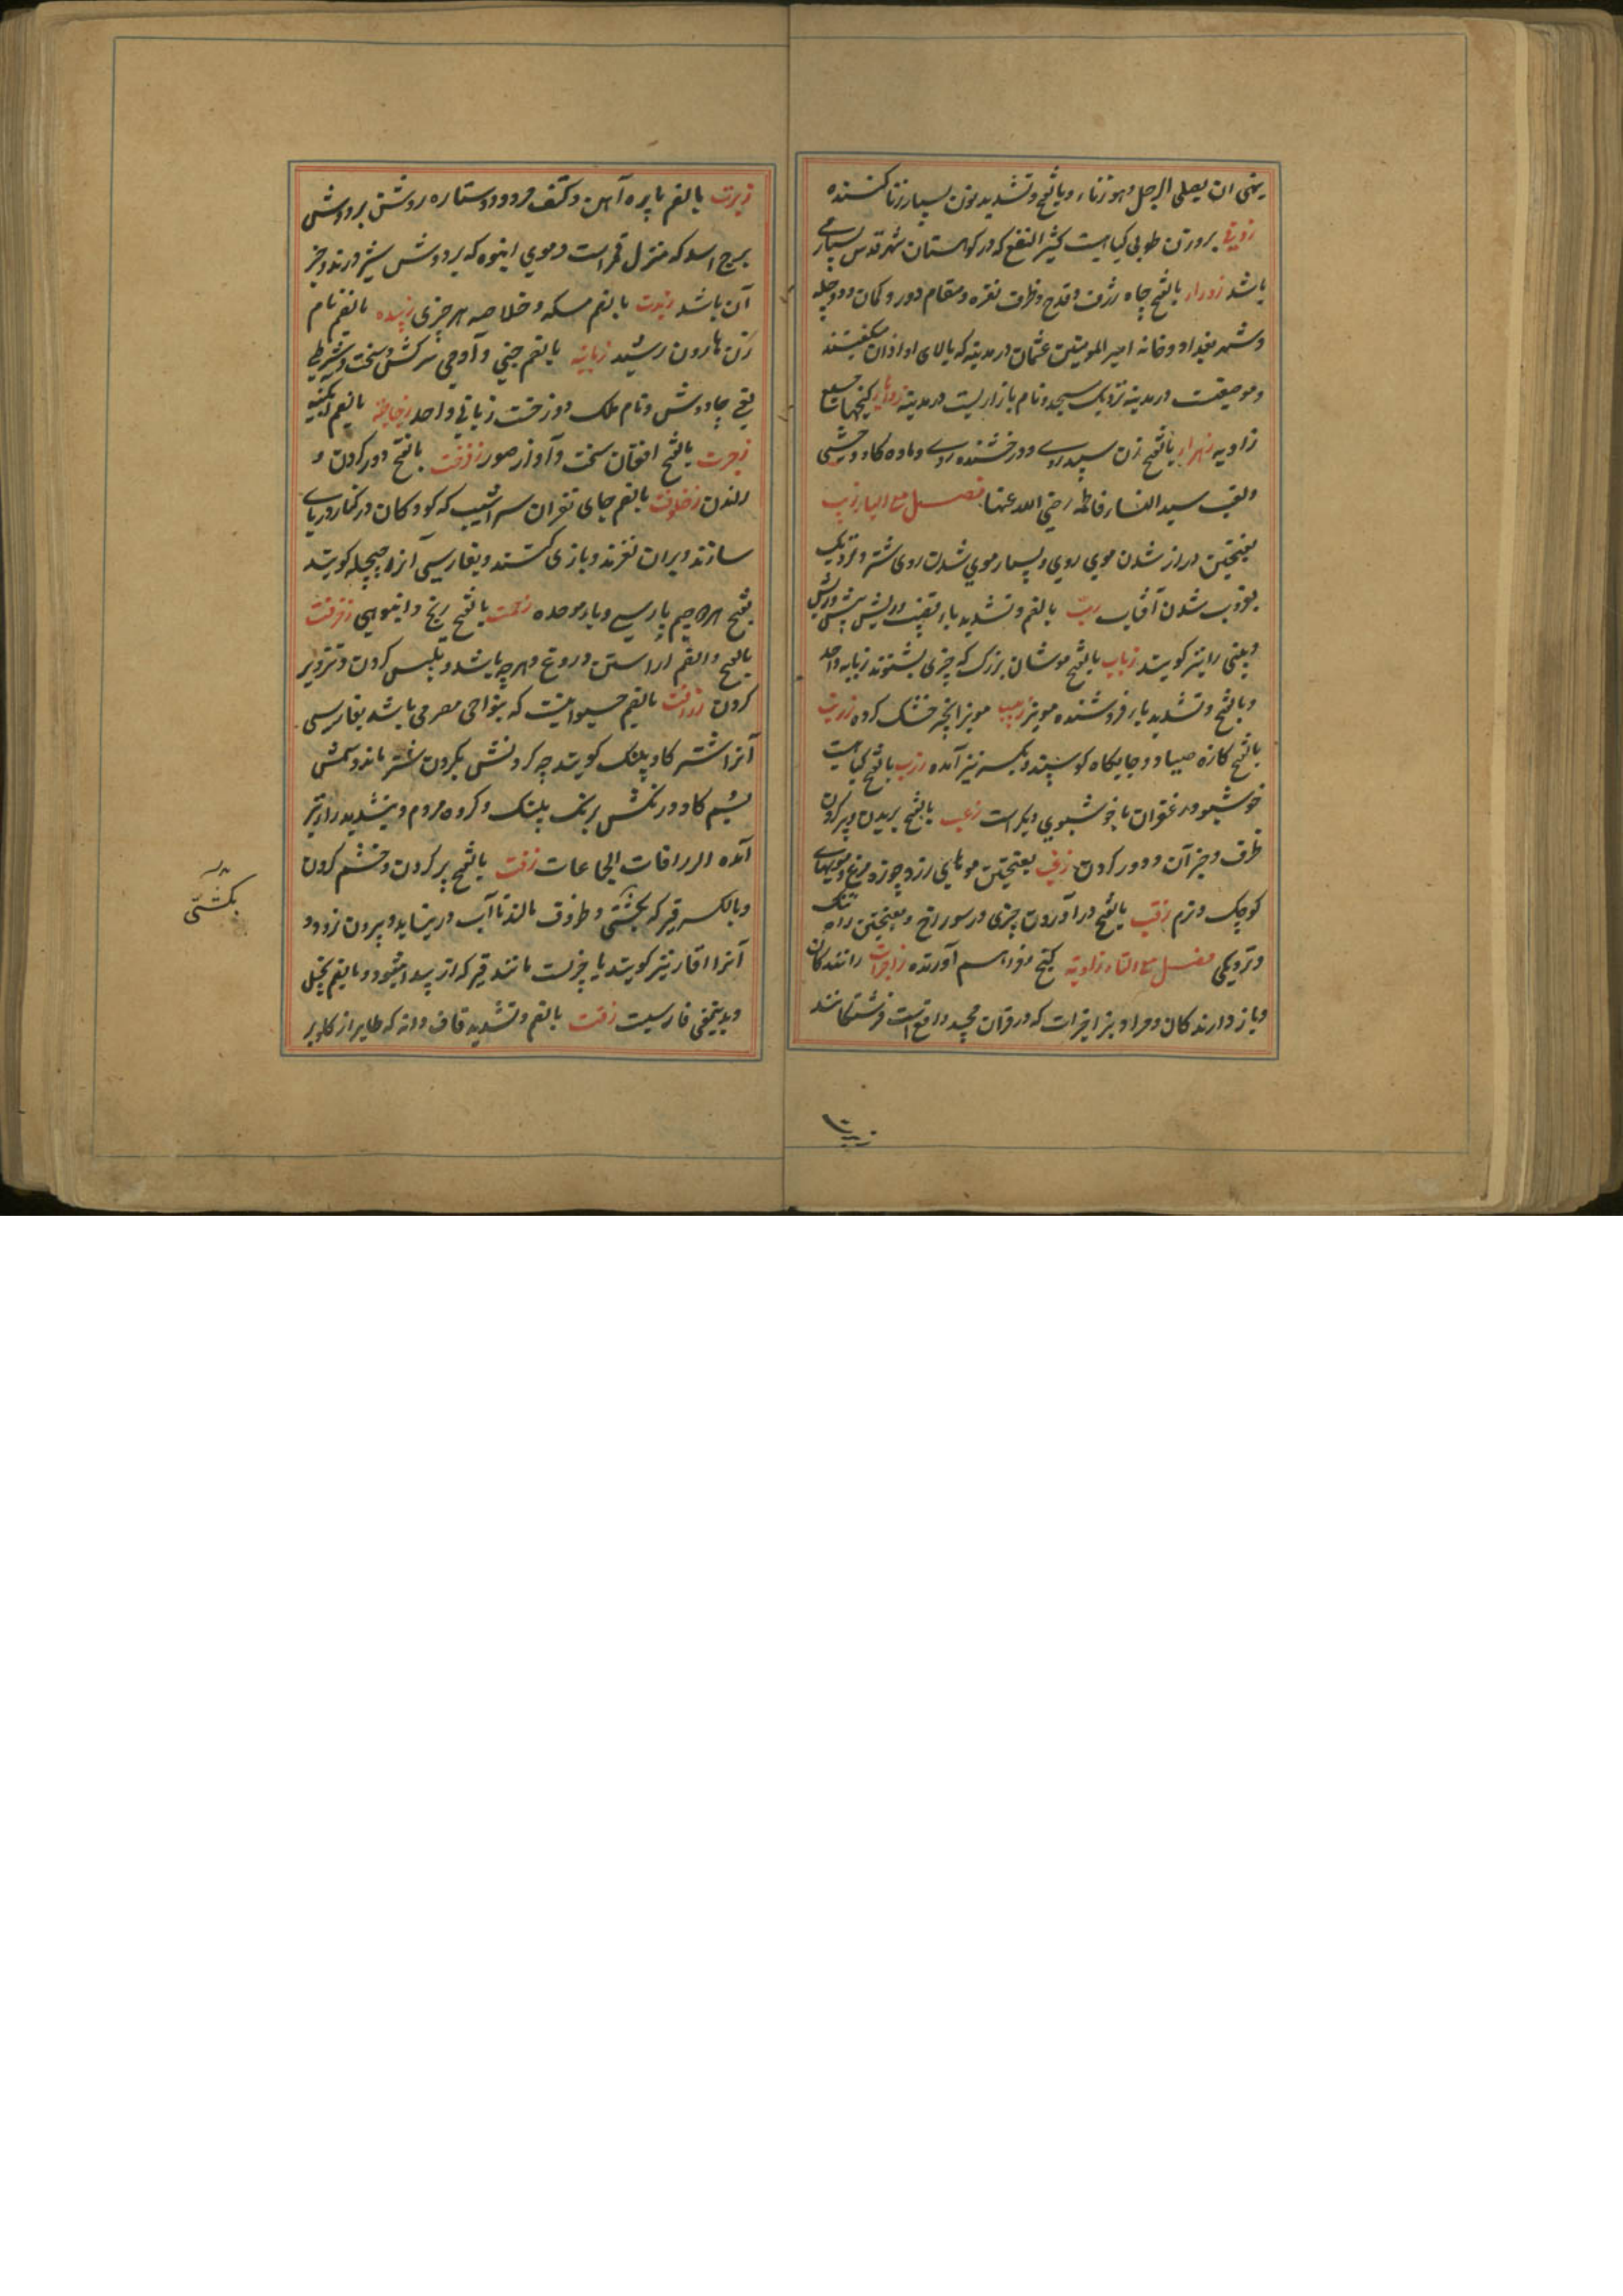 نهی ان یصلی الرجل وهو زناء و بالفتح و تشدید نون بسیار زنا کننده
بروزن طوبی کیاهیست کثیر النفع که در کوهستان شهر قدس بسیار می
باشد زوراء بالفتح چاه ژرف و قدح و ظرف نقره و مقام دور و کمان و دجله
و شهر بغداد و خانه امیر المومنین عثمان در مدینه که بالای او اذان میکفتند
و موضعیست در مدینه نزدیک مسجد و نام بازاریست در مدینه زوایا کنجها جمع
زاویه زهراء بالفتح زن سپید روی و درخشنده روی و ماده کاو وحشی
و لقب سید النساء فاطمه رضی الله عنها فصل مع الباء زبب
بفتحتین دراز شدن موی روی و بسیار موی شدن روی شتر و نزدیک
بغروب شدن آفتاب زب بالضم و تشدید باء قضیب و ریش پیش ریش
و بینی را نیز کویند زباب بالفتح موشان بزرک که چیزی نشنوند زبابه واحد
و بالفتح و تشدید باء فروشنده مویز زبیب مویز انجیر خشک کرده زریب
بالفتح کازه صیاد و جایکاه کوسپند و بکسر نیز آمده زرنب بالفتح کیاهیست
خوشبو و زعفران یا خوشبوی دیکر است زعب بالفتح بریدن و پر کردن
ظرف و جز آن و دور کردن زغب بفتحتین مو های زرد چوزه مرغ و مویهای
کوچک و نرم زقب بالفتح در آوردن چیزی در سوراخ و بفتحتین راه تنک
و نزدیکی فصل مع التاء زاویة کنج و فراهم آورنده زاجرات رانندکان
و باز دارندکان و مراد بزاجرات که در قران مجید واقع است فرشتکانند
زبرت
زبرت بالضم پاره آهن و کتف مرد و دو ستاره روشن بر دوش
برج اسد که منزل قمر است و موی انبوه که بر دوش شیر دارند و جز
آن باشد زبدت بالضم مسکه و خلاصه هر چیزی زبیده بالضم نام
زن هارون رشید زبانیه بالضم جنی و آدمی سرکش و سخت و شرطی
یعنی چاووش و نام ملک دوزخست زبانی واحد زجاجة بالضم آبکینه
زجرت بالفتح افغان سخت و آواز صور بالفتح دور کردن و
راندن زحلوقت بالضم جای لغزان سراشیب که کودکان در کنار دریا
سازند و بران لغزند و بازی کنند و بفارسی آنرا چپچله کویند
بفتح هر دو جیم پارسی و باء موحده زحمت بالفتح رنج و انبوهی زخرفت
بالفتح و الضم آراستن و دروغ و هر چه باشد و تلبیس کردن و تزویر
کردن زرافت بالضم حیوانیست که بنواحی مصر می باشد بفارسی
آنرا شتر کاو پلنک کویند چه کردنش بکردن شتر ماند و سمش
بسم کاو و رنکش برنک پلنک و کروه مردم و بتشدید را نیز
آمده الزرافات الجماعات زفت بالفتح پر کردن و خشم کردن
و بالکسر قیر که بکشتی و ظروف مالند تا آب در نیاید و بیرون نرود و
آنرا قار نیز کویند یا چیزیست مانند قیر که از پیدا میشود و بالضم بخیل
و بدینمعنی فارسیست زقت بالضم و تشدید قاف دانه که طایر از کلو بر
بکشتی